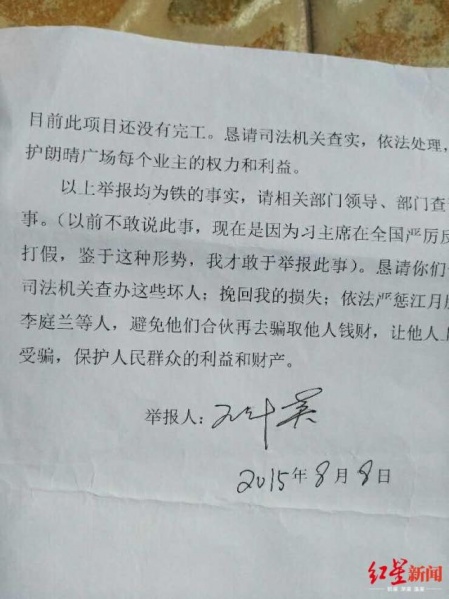 目前此项目还没有完工。恳请司法机关查实，依法处理，
护朗晴广场每个业主的权力和利益。
以上举报均为铁的事实，请相关部门领导、部门查
事。（以前不敢说此事，现在是因为习主席在全国严厉反
打假，鉴于这种形势，我才敢于举报此事）。恳请你们
司法机关查办这些坏人；挽回我的损失；依法严惩江月
李庭兰等人，避免他们合伙再去骗取他人钱财，让他人
受骗，保护人民群众的利益和财产。
举报人：
2015年8月8日
红星新闻